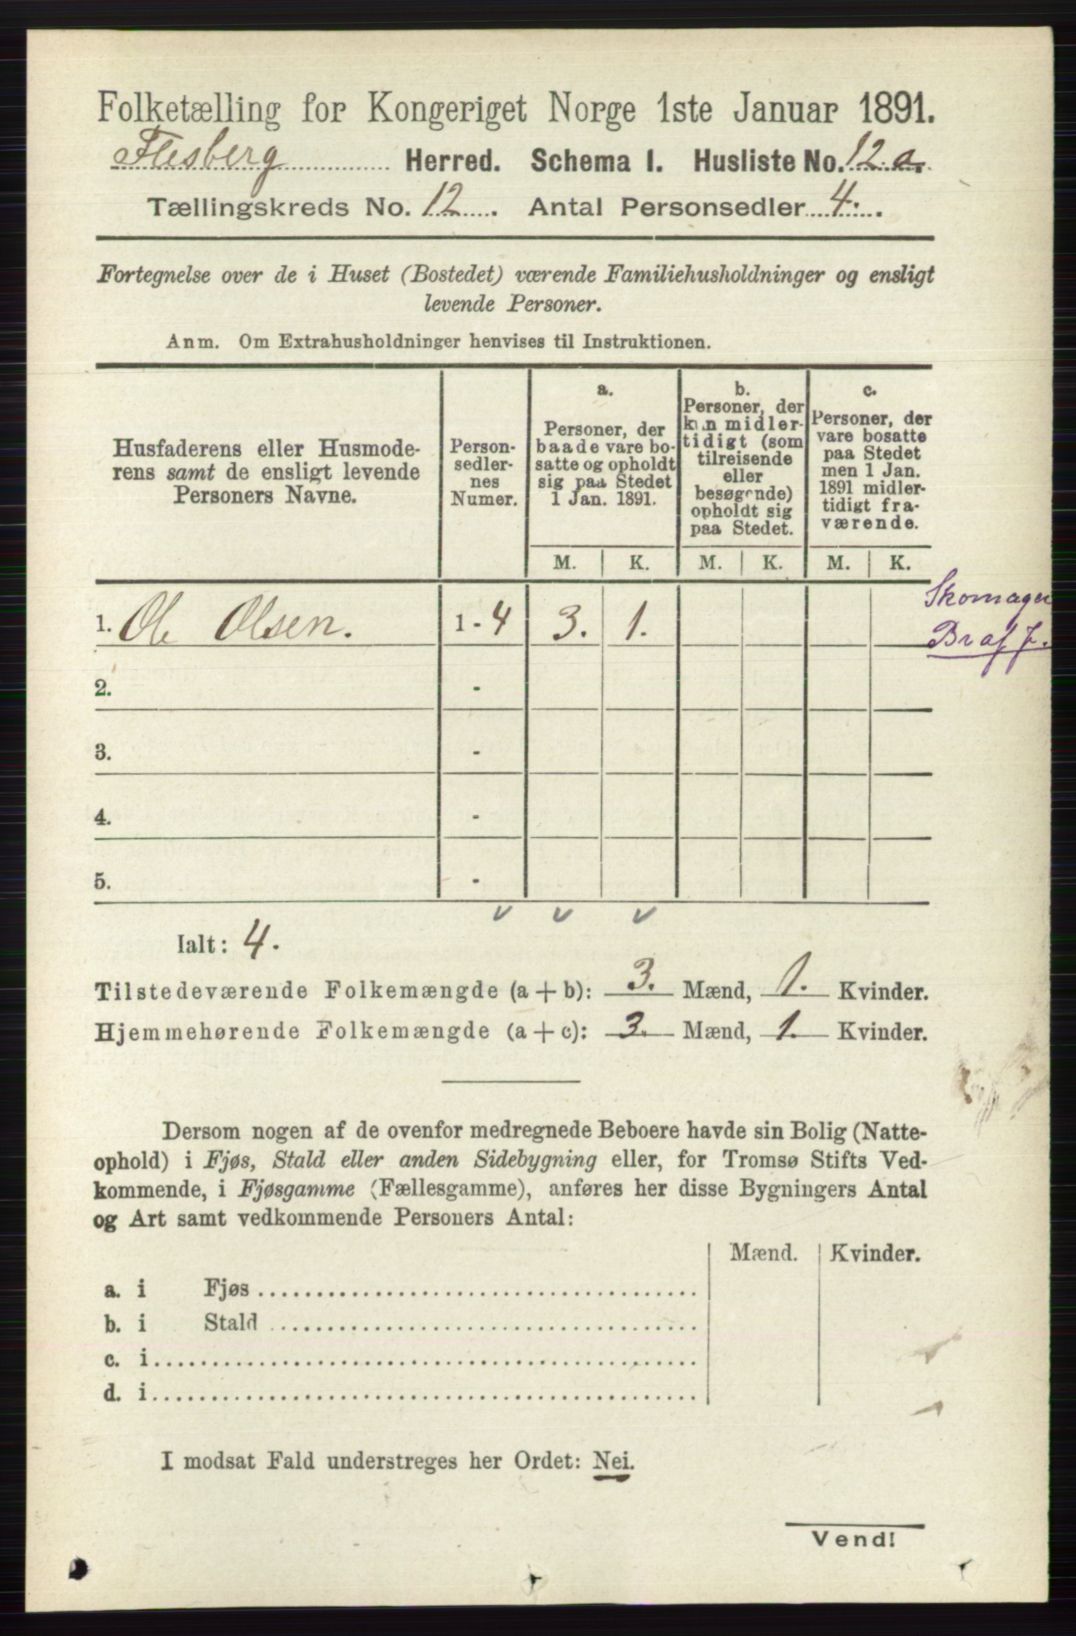 Folketælling for Kongeriget Norge 1ste Januar 1891.
Flesberg Herred. Schema I. Husliste No. 12 a.
Tællingskreds No. 12. Antal Personsedler 4.
Fortegnelse over de i Huset (Bostedet) værende Familiehusholdninger og ensligt
levende Personer.
Anm. Om Extrahusholdninger henvises til Instruktionen.
Husfaderens eller Husmode-
rens samt de ensligt levende
Personers Navne.
Person-
sedler-
nes
Numer.
a.
Personer, der
baade vare bo-
satte og opholdt
sig paa Stedet
1 Jan. 1891.
b.
Personer, der
kun midler-
tidigt (som
tilreisende
eller
besøgende)
opholdt sig
paa Stedet.
c.
Personer, der
vare bosatte
paa Stedet
men 1 Jan.
1891 midler-
tidigt fra-
værende.
M. K. M. K. M. K.
1. Ole Olsen. 1 - 4 3. 1.
Skomager
Braf J.
2. -
3. -
4. -
5. -
Ialt: 4.
Tilstedeværende Folkemængde (a + b): 3. Mænd, 1. Kvinder.
Hjemmehørende Folkemængde (a + c): 3. Mænd, 1. Kvinder.
Dersom nogen af de ovenfor medregnede Beboere havde sin Bolig (Natte-
ophold) i Fjøs, Stald eller anden Sidebygning eller, for Tromsø Stifts Ved-
kommende, i Fjøsgamme (Fællesgamme), anføres her disse Bygningers Antal
og Art samt vedkommende Personers Antal:
Mænd. Kvinder.
a. i Fjøs
b. i Stald
c. i
d. i
I modsat Fald understreges her Ordet: Nei.
Vend!